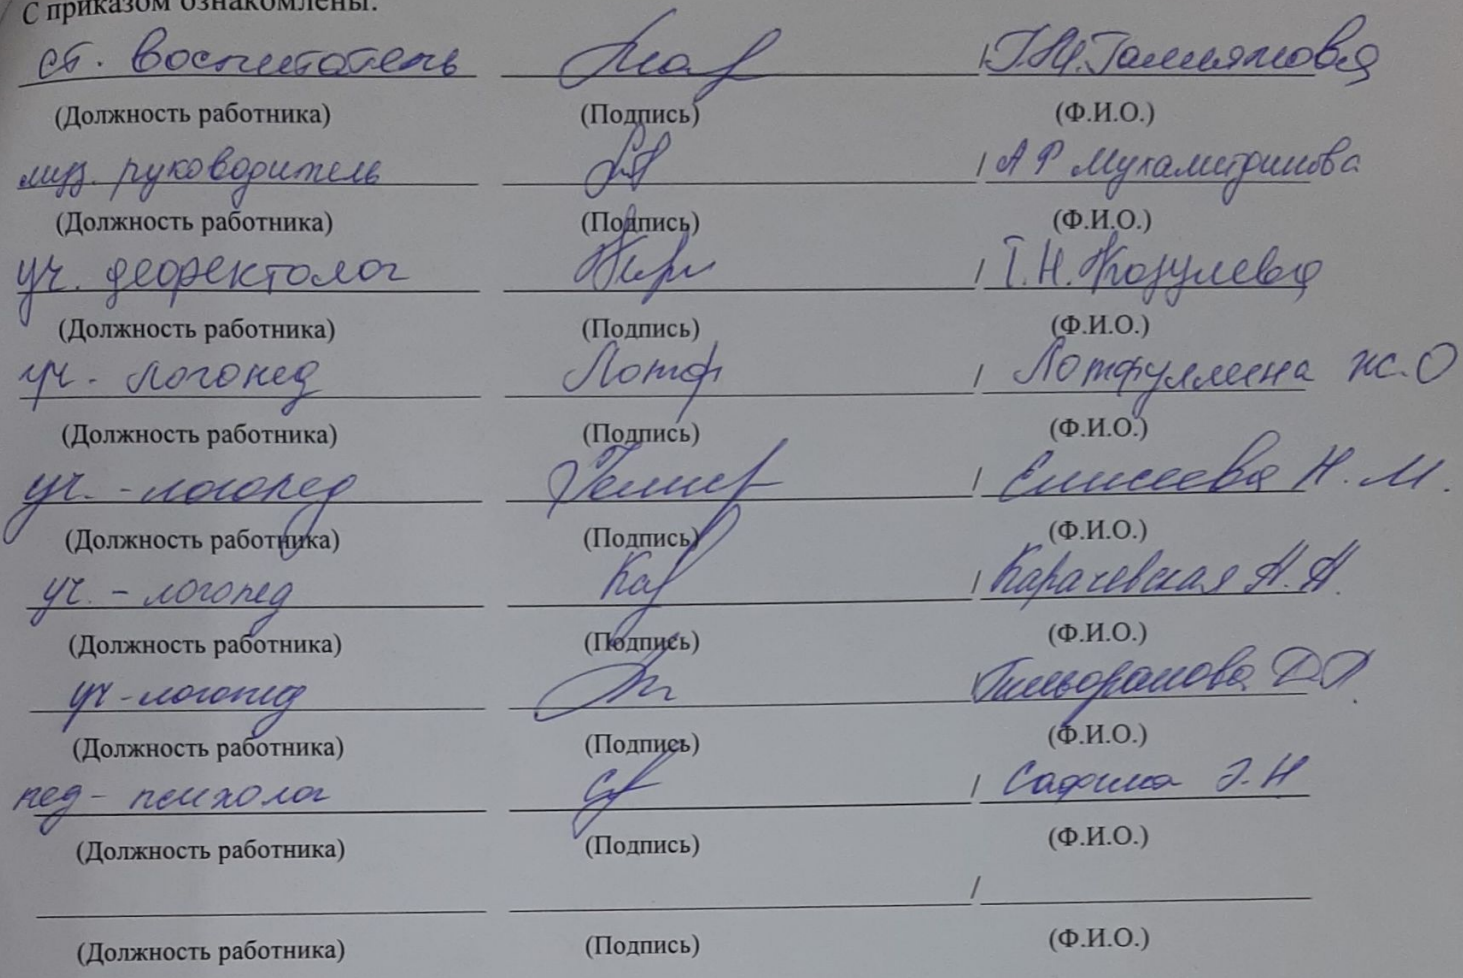 С приказом ознакомлены:
ст. воспитатель / Г.Н.
(Должность работника) (Подпись) (Ф.И.О.)
муз. руководитель / А Р Мухаметдинова
(Должность работника) (Подпись) (Ф.И.О.)
уч. дефектолог / Т.Н. Козулева
(Должность работника) (Подпись) (Ф.И.О.)
уч. логопед Лотф / Лотфуллина Ж.О
(Должность работника) (Подпись) (Ф.И.О.)
уч. - логопед / Елисеева Н.М.
(Должность работника) (Подпись) (Ф.И.О.)
уч. - логопед Кар / Карачевская Н.Н.
(Должность работника) (Подпись) (Ф.И.О.)
уч - логопед /
(Должность работника) (Подпись) (Ф.И.О.)
пед - психолог / Сафина Э.Н
(Должность работника) (Подпись) (Ф.И.О.)
/
(Должность работника) (Подпись) (Ф.И.О.)